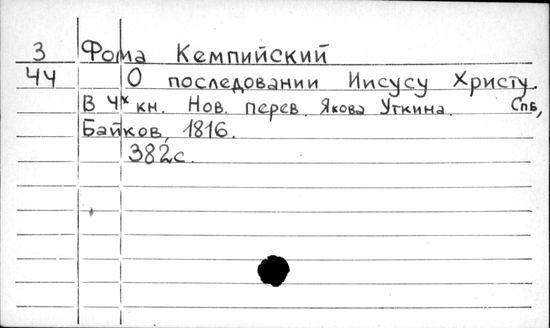 3 Фома Кемпийский
44 О последовании Иисусу Христу.
В 4х кн. Нов. перев. Якова Уткина. Спб,
Байков, 1816.
382с.